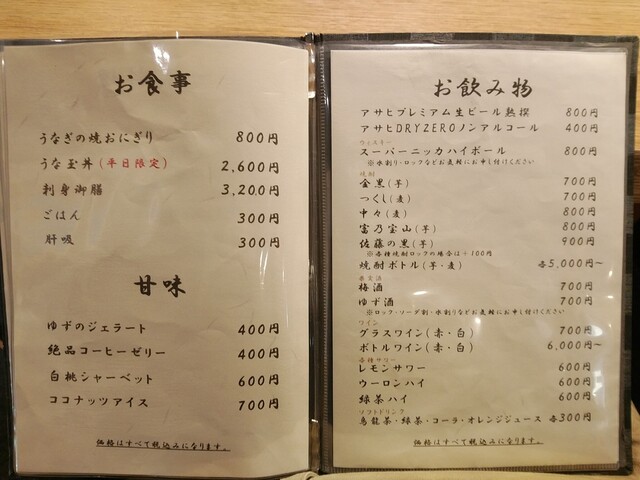 お食事
うなぎの焼おにぎり 800円
うな玉丼(平日限定) 2,600円
刺身御膳 3,200円
ごはん 300円
肝吸 300円
甘味
ゆずのジェラート 400円
絶品コーヒーゼリー 400円
白桃シャーベット 600円
ココナッツアイス 700円
価格はすべて税込みになります。
お飲み物
アサヒプレミアム生ビール熟撰 800円
アサヒDRYZEROノンアルコール 400円
ウィスキー
スーパーニッカハイボール 800円
※水割り・ロックなどお気軽にお申し付けください
焼酎
金黒(芋) 700円
つくし(麦) 700円
中々(麦) 800円
富乃宝山(芋) 800円
佐藤の黒(芋) 900円
※各種焼酎ロックの場合は+100円
焼酎ボトル(芋・麦) 各5,000円~
果実酒
梅酒 700円
ゆず酒 700円
※ロック・ソーダ割・水割りなどお気軽にお申し付けください
ワイン
グラスワイン(赤・白) 700円
ボトルワイン(赤・白) 6,000円~
各種サワー
レモンサワー 600円
ウーロンハイ 600円
緑茶ハイ 600円
ソフトドリンク
烏龍茶・緑茶・コーラ・オレンジジュース 各300円
価格はすべて税込みになります。